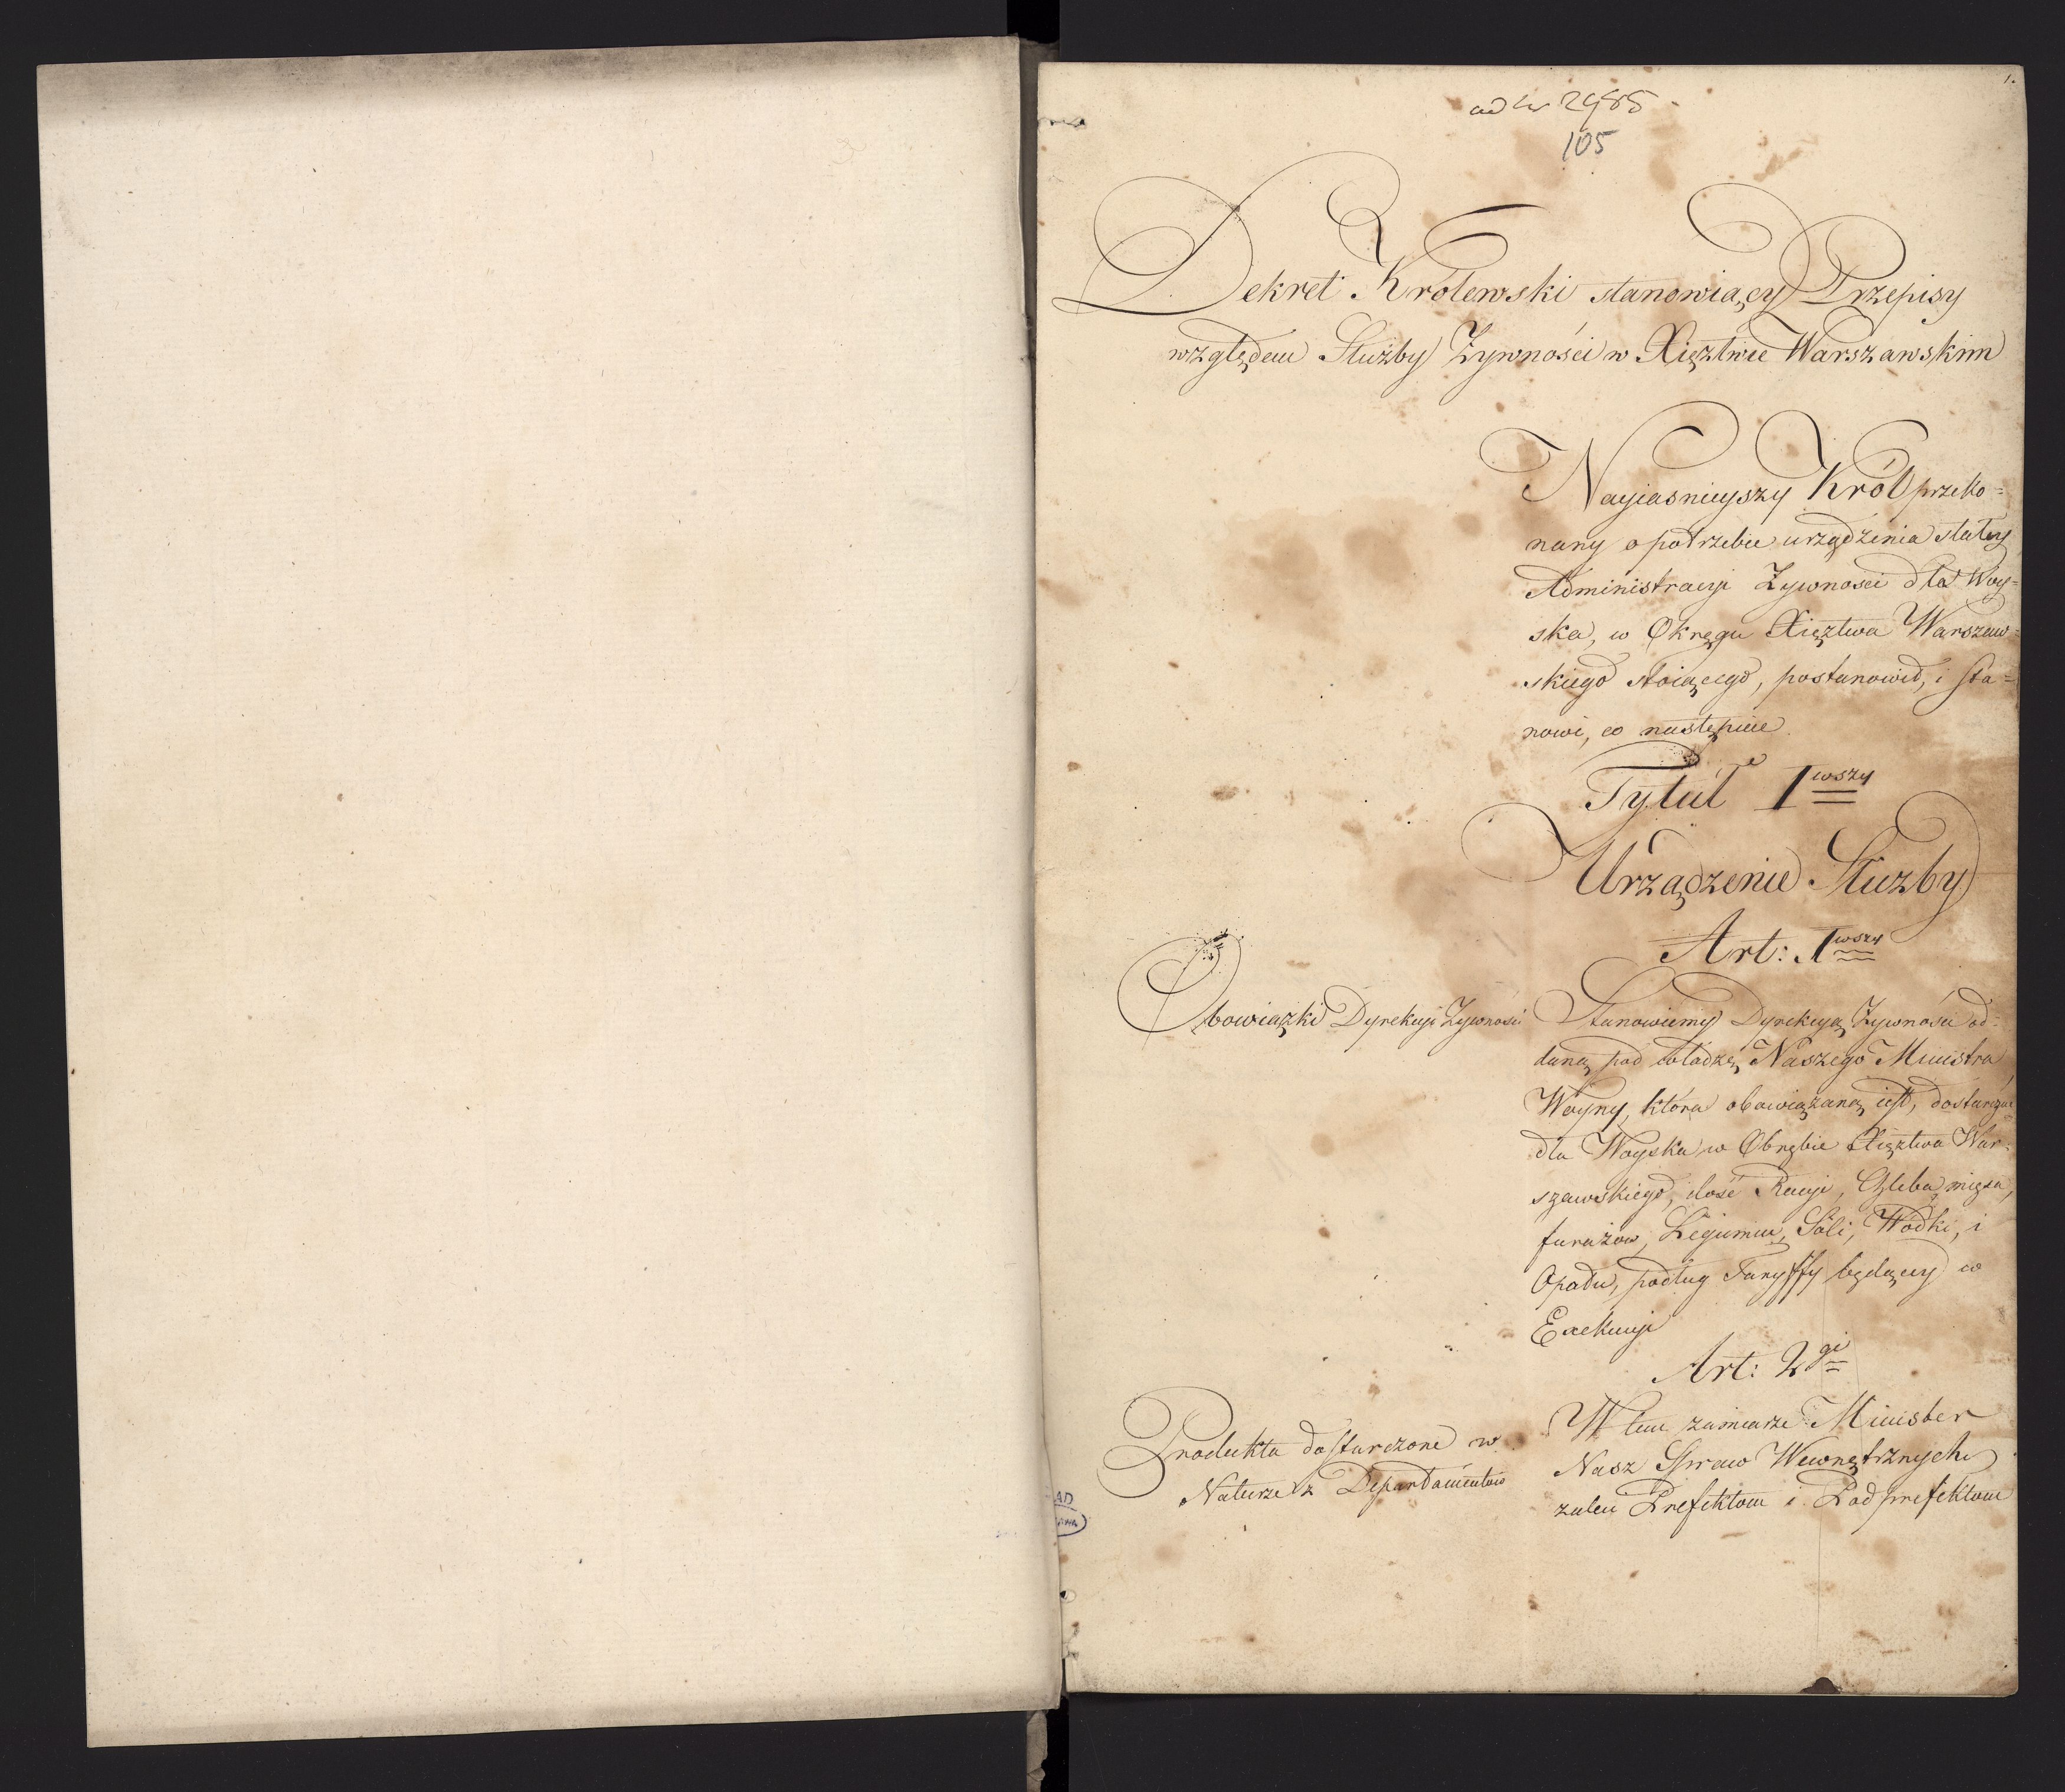 1.
ad Nr 2985
105
Dekret Królewski stanowiący Przepisy
względem Służby Żywności w Xięztwie Warszawskim
Nayiasnieyszy Król przeko=
nany o potrzebie urządzenia stałey
Administracyi Żywności dla Woy=
ska, w Okręgu Xięztwa Warszaw=
skiego stoiącego, postanowił, i sta=
nowi, co następuie
Tytuł I wszy
Urządzenie Służby
Art: 1 wszy
Obowiązki Dyrekcyi Żywności
Stanowiemy Dyrekcyą Żywności od=
daną pod władzę Naszego Ministra
Woyny, która obowiązaną iest, dostarczać
dla Woyska w Obrębie Xięztwa War=
szawskiego, ilość Racyi, Chleba, mięsa,
furażów, Legumin, Soli, Wódki, i
Opału, podług Taryffy będącey w
Exekucyi
Art: 2gi
Produkta dostarczone w
Naturze z Departamentów
W tem zamiarze Minister
Nasz Spraw Wewnętrznych
zaleci Prefektom i Podprefektom